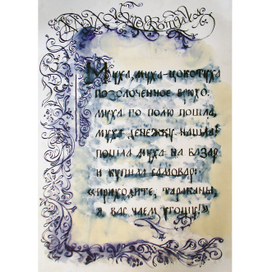 Муха, муха-цокотуха
позолоченное брюхо.
муха по полю пошла,
муха денежку нашла.
пошла муха на базар
и купила самовар:
«приходите, тараканы,
я вас чаем угощу!»